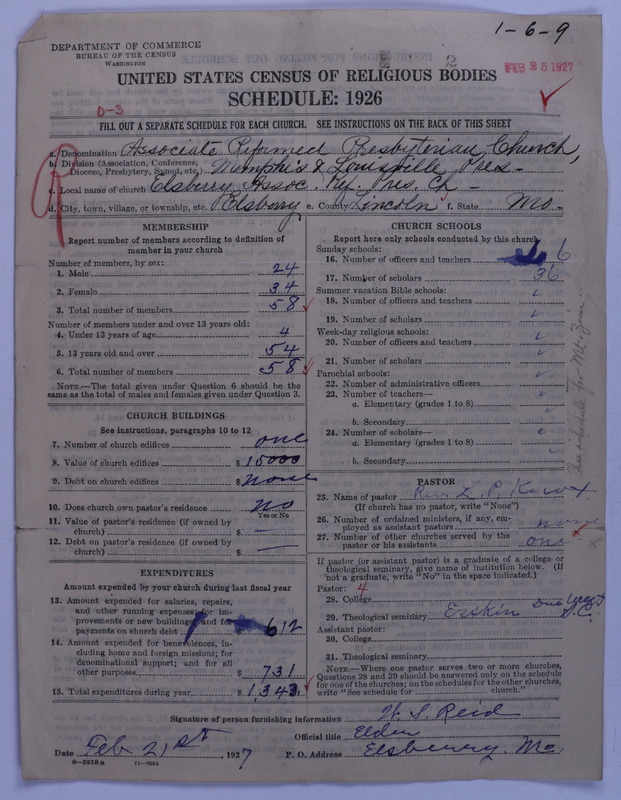 1-6-9
DEPARTMENT OF COMMERCE
BUREAU OF THE CENSUS
WASHINGTON
2
FEB 25 1927
UNITED STATES CENSUS OF RELIGIOUS BODIES
SCHEDULE: 1926
0-3
FILL OUT A SEPARATE SCHEDULE FOR EACH CHURCH. SEE INSTRUCTIONS ON THE BACK OF THIS SHEET
a. Denomination Associate Reformed Presbyterian Church,
b. Division (Association, Conference, Diocese, Presbytery, Synod, etc.) Memphis & Louisville Pres-
c. Local name of church Elsberry Assoc. Ref. Pres. Ch-
d. City, town, village, or township, etc. Elsberry e. County Lincoln f. State Mo-
MEMBERSHIP
Report number of members according to definition of
member in your church
Number of members, by sex:
1. Male 24
2. Female 34
3. Total number of members 58
Number of members under and over 13 years old:
4. Under 13 years of age 4
5. 13 years old and over 54
6. Total number of members 58
NOTE.—The total given under Question 6 should be the
same as the total of males and females given under Question 3.
CHURCH BUILDINGS
See instructions, paragraphs 10 to 12
7. Number of church edifices one
8. Value of church edifices $ 15000
9. Debt on church edifices $ none
10. Does church own pastor's residence no
Yes or No
11. Value of pastor's residence (if owned by
church) $ —
12. Debt on pastor's residence (if owned by
church) $ —
EXPENDITURES
Amount expended by your church during last fiscal year
13. Amount expended for salaries, repairs,
and other running expenses; for im-
provements or new buildings, and for
payments on church debt 612
14. Amount expended for benevolences, in-
cluding home and foreign missions; for
denominational support; and for all
other purposes 731
15. Total expenditures during year $ 1,343.
CHURCH SCHOOLS
Report here only schools conducted by this church
Sunday schools:
16. Number of officers and teachers 6
17. Number of scholars 36
Summer vacation Bible schools:
18. Number of officers and teachers
19. Number of scholars
Week-day religious schools:
20. Number of officers and teachers
21. Number of scholars
Parochial schools:
22. Number of administrative officers
23. Number of teachers—
a. Elementary (grades 1 to 8)
b. Secondary
24. Number of scholars—
a. Elementary (grades 1 to 8)
b. Secondary
See schedule for Mt. Zion.
PASTOR
25. Name of pastor Rev. L. P.
(If church has no pastor, write "None")
26. Number of ordained ministers, if any, em-
ployed as assistant pastors none
27. Number of other churches served by the
pastor or his assistants one
If pastor (or assistant pastor) is a graduate of a college or
theological seminary, give name of institution below. (If
not a graduate, write "No" in the space indicated.)
Pastor: 4
28. College
29. Theological seminary Erskin Due West S.C.
Assistant pastor:
30. College
31. Theological seminary
NOTE.—Where one pastor serves two or more churches,
Questions 28 and 29 should be answered only on the schedule
for one of the churches; on the schedules for the other churches,
write "See schedule for church."
Signature of person furnishing information W. S. Reid
Official title Elder
Date Feb 21st, 1927 P. O. Address Elsberry Mo.
8-5518a 11-9024